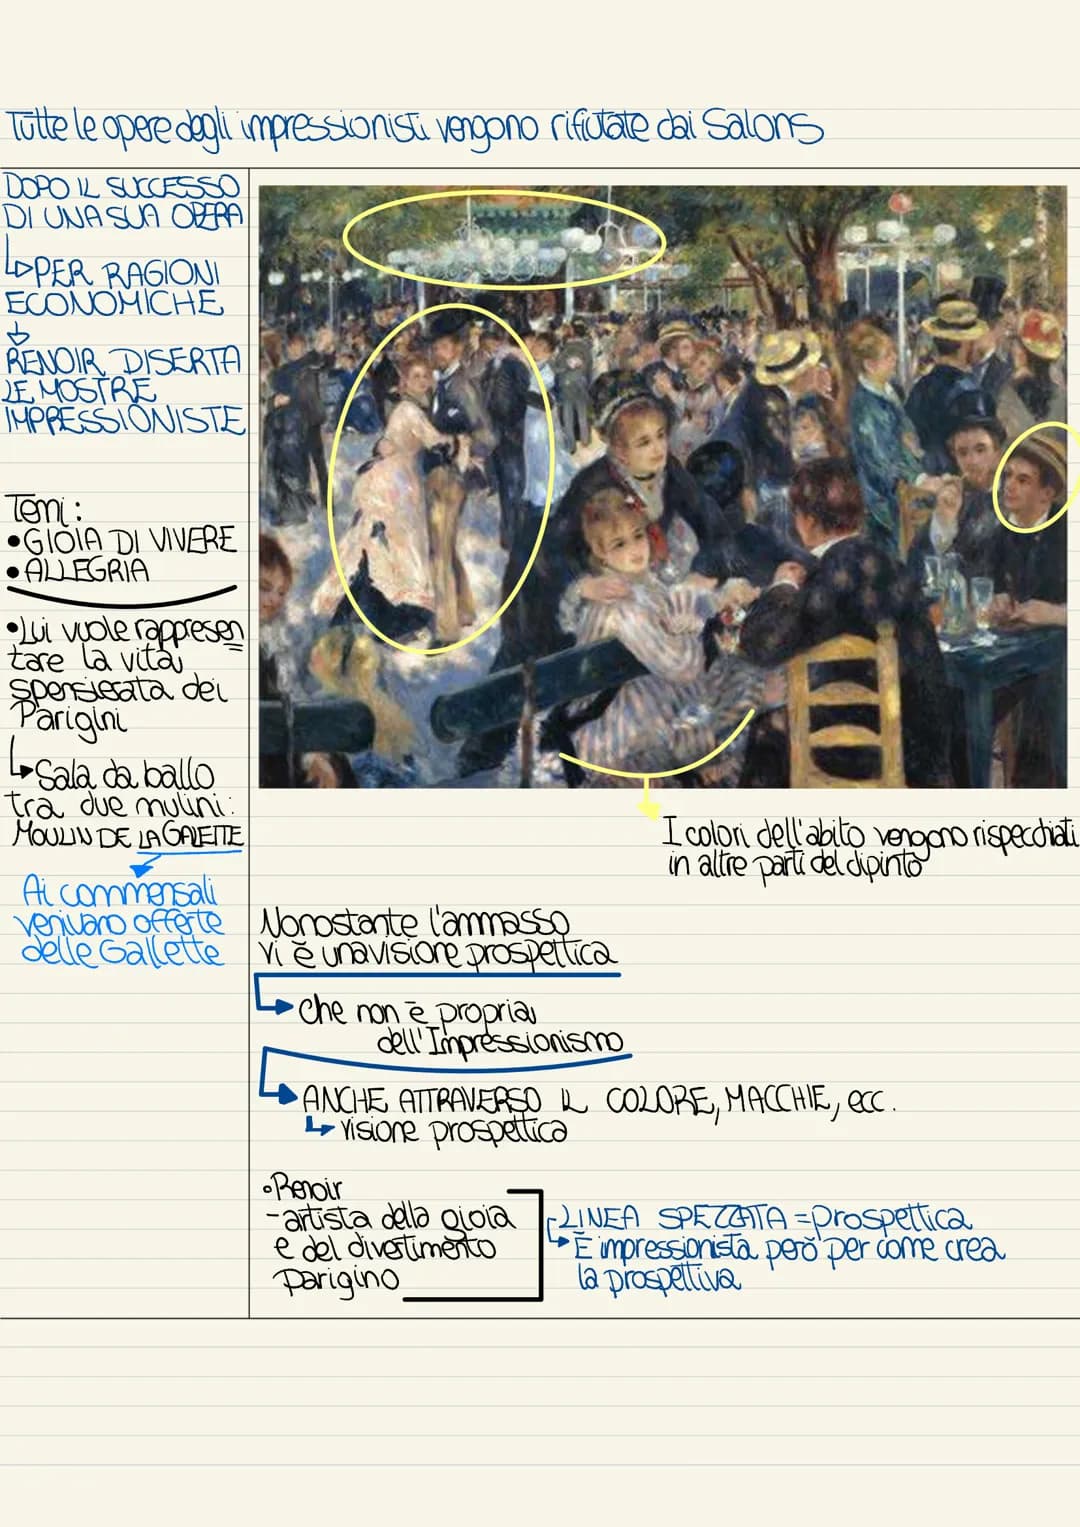 Tutte le opere degli impressionisti vengono rifiutate dai Salons
DOPO IL SUCCESSO
DI UNA SUA OPERA
PER RAGIONI
ECONOMICHE
RENOIR DISERTA
LE MOSTRE
IMPRESSIONISTE
Temi:
•GIOIA DI VIVERE
•ALLEGRIA
•Lui vuole rappresen
tare la vita
spensierata dei
Parigini
Sala da ballo
tra due mulini:
MOULIN DE LA GALETTE
Ai commensali
venivano offerte
delle Gallette
I colori dell'abito vengono rispecchiati
in altre parti del dipinto
Nonostante l'ammasso
vi è una visione prospettica
che non è propria
dell'Impressionismo
ANCHE ATTRAVERSO IL COLORE, MACCHIE, ecc.
visione prospettica
•Renoir
-artista della gioia
e del divertimento
parigino
LINEA SPEZZATA = prospettica
È impressionista però per come crea
la prospettiva